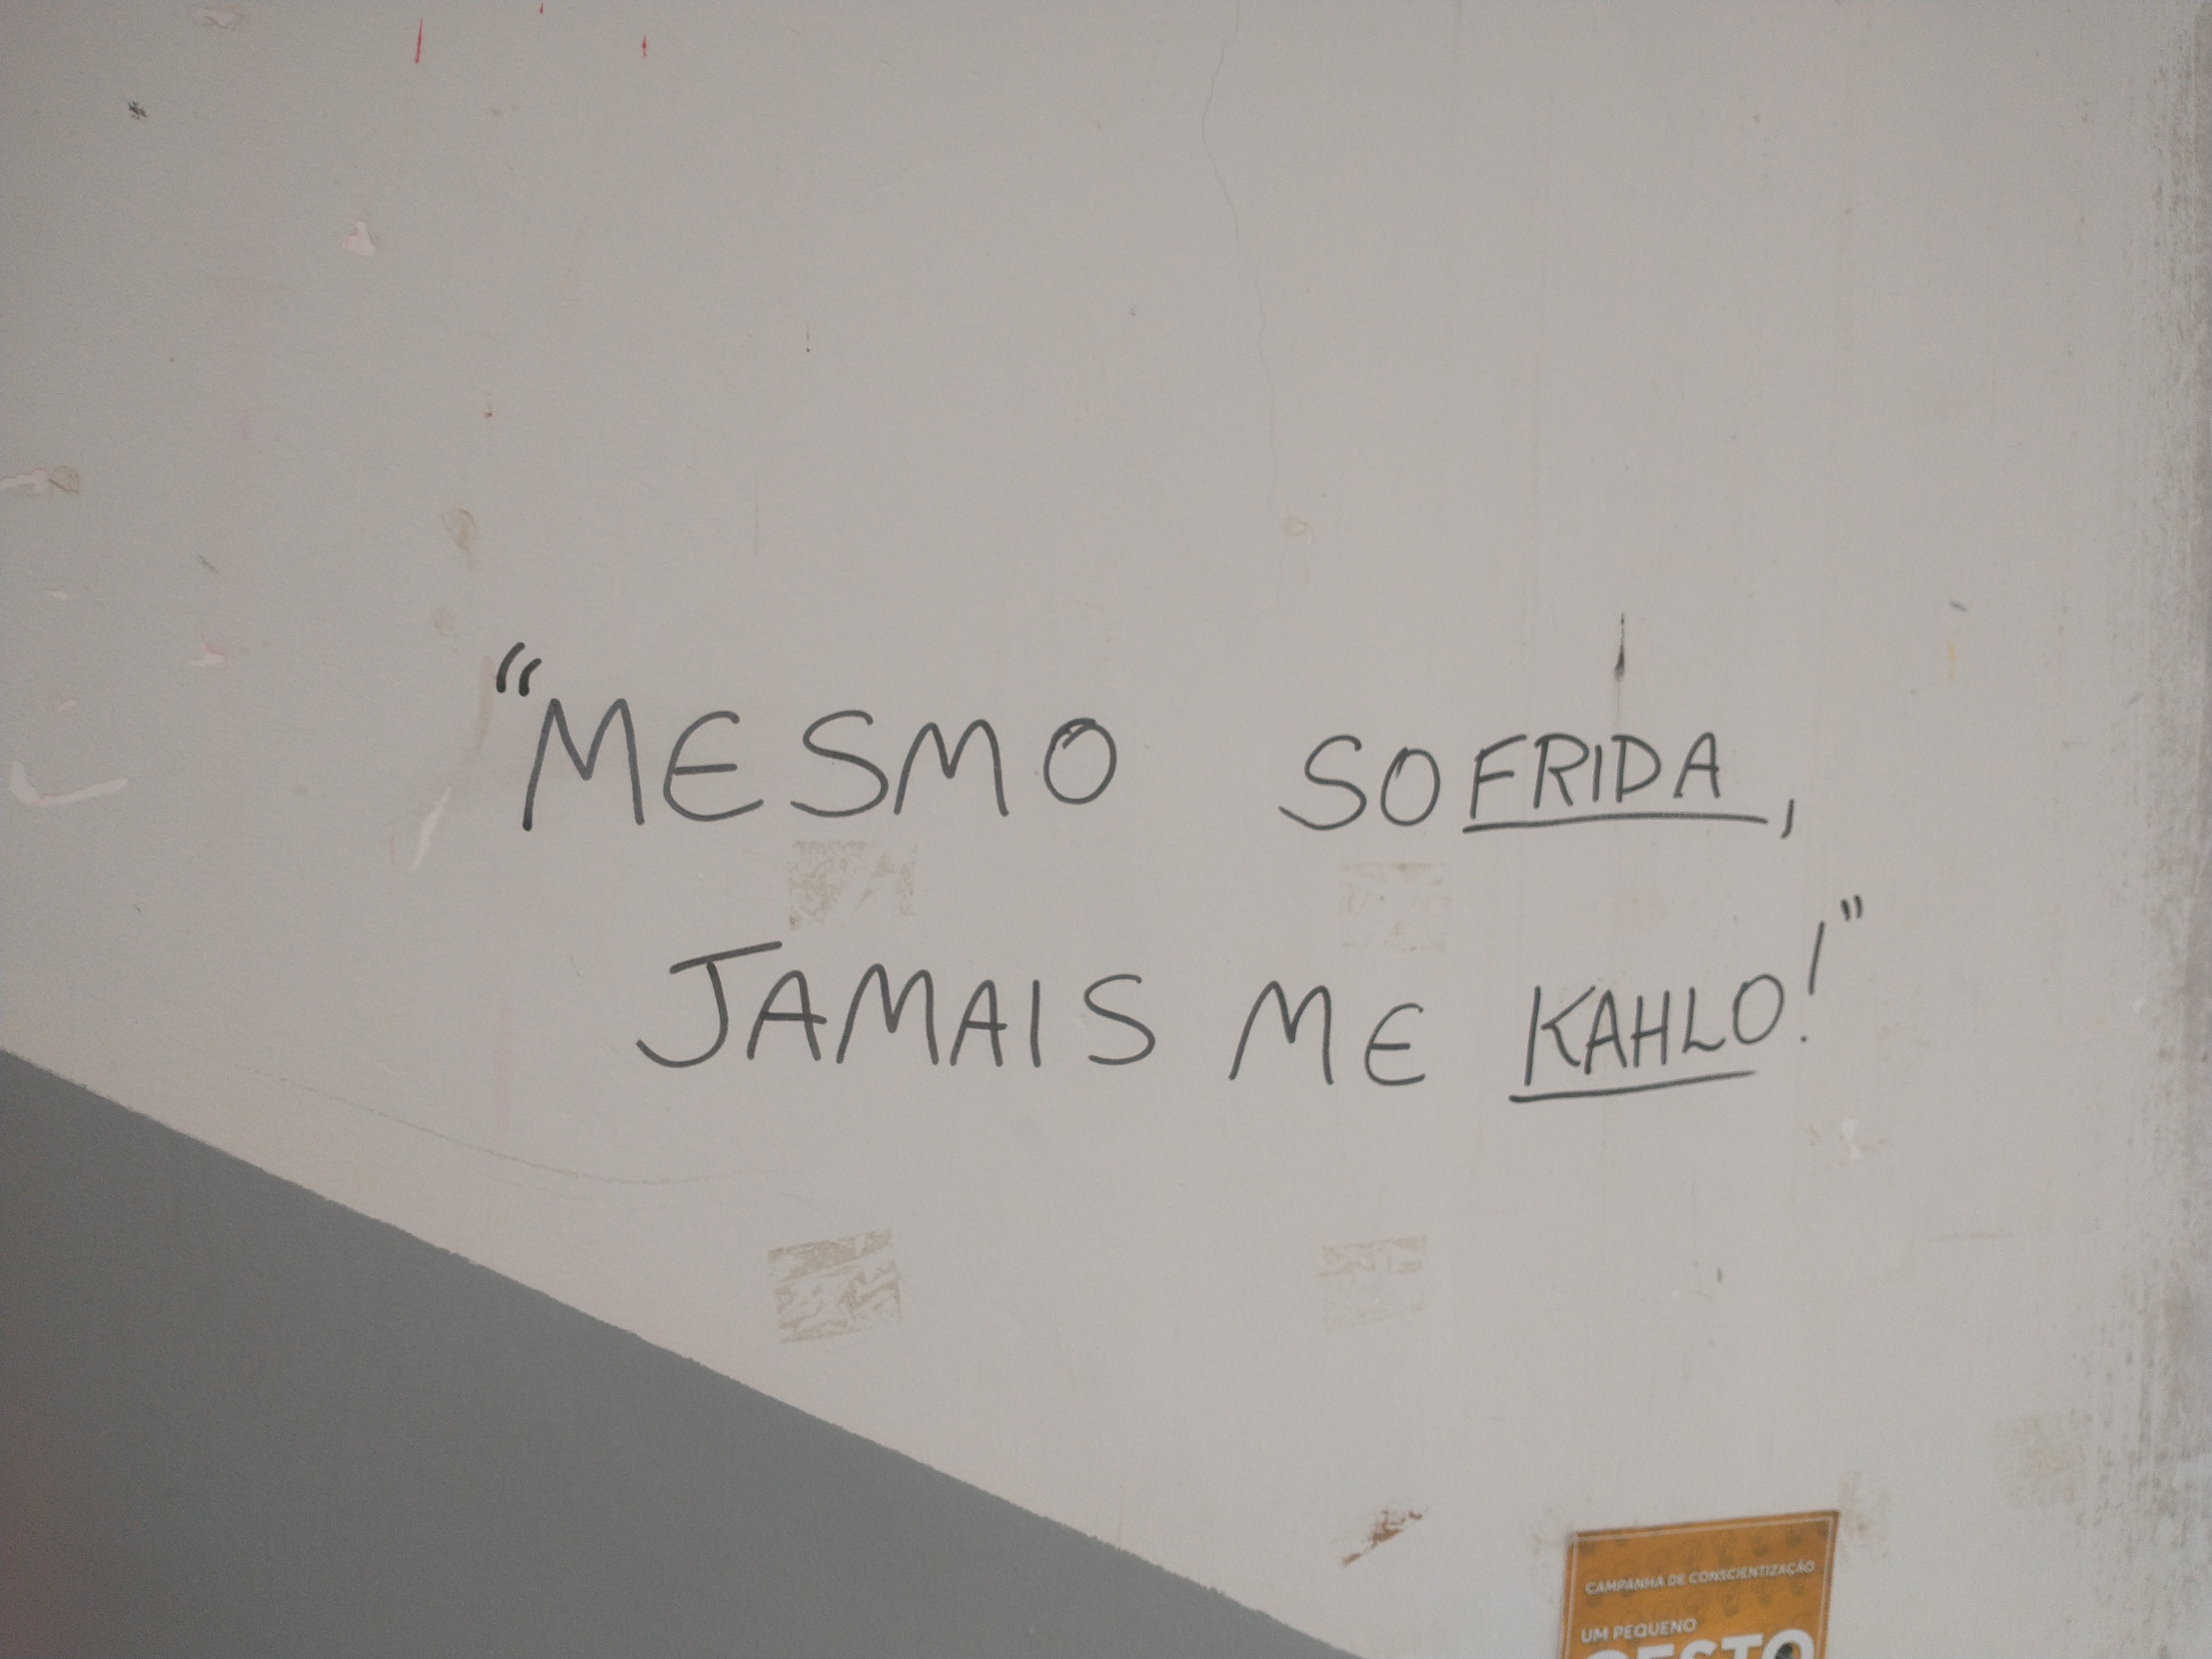 "MESMO SOFRIDA,
JAMAIS ME KAHLO!"
CAMPANHA DE CONSCIENTIZAÇÃO
UM PEQUENO
GESTO